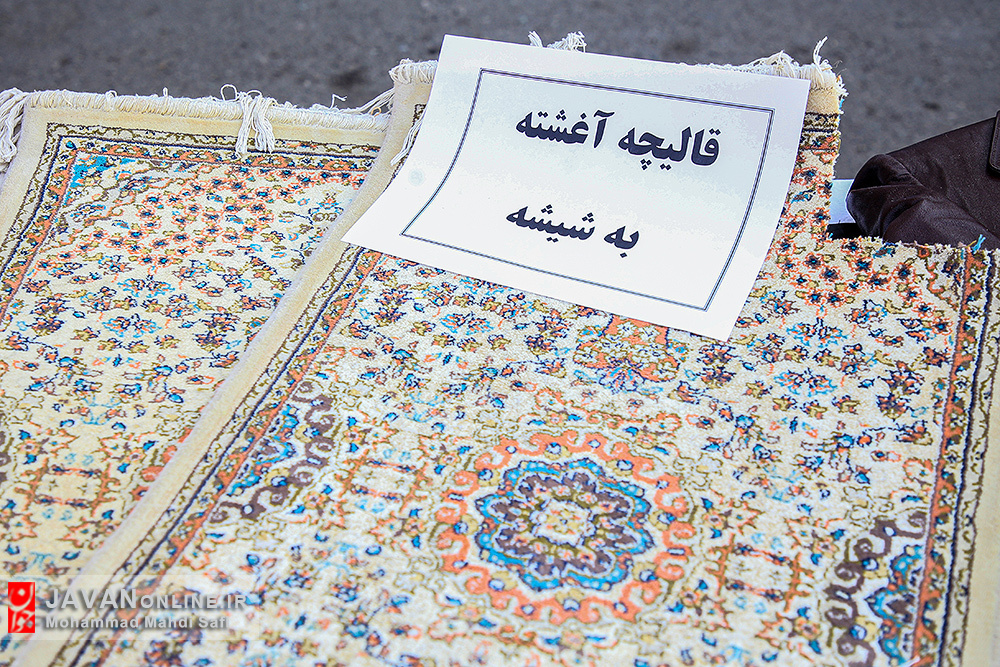 قالیچه آغشته
به شیشه
JAVANONLINE.IR
Mohammad Mahdi Safi